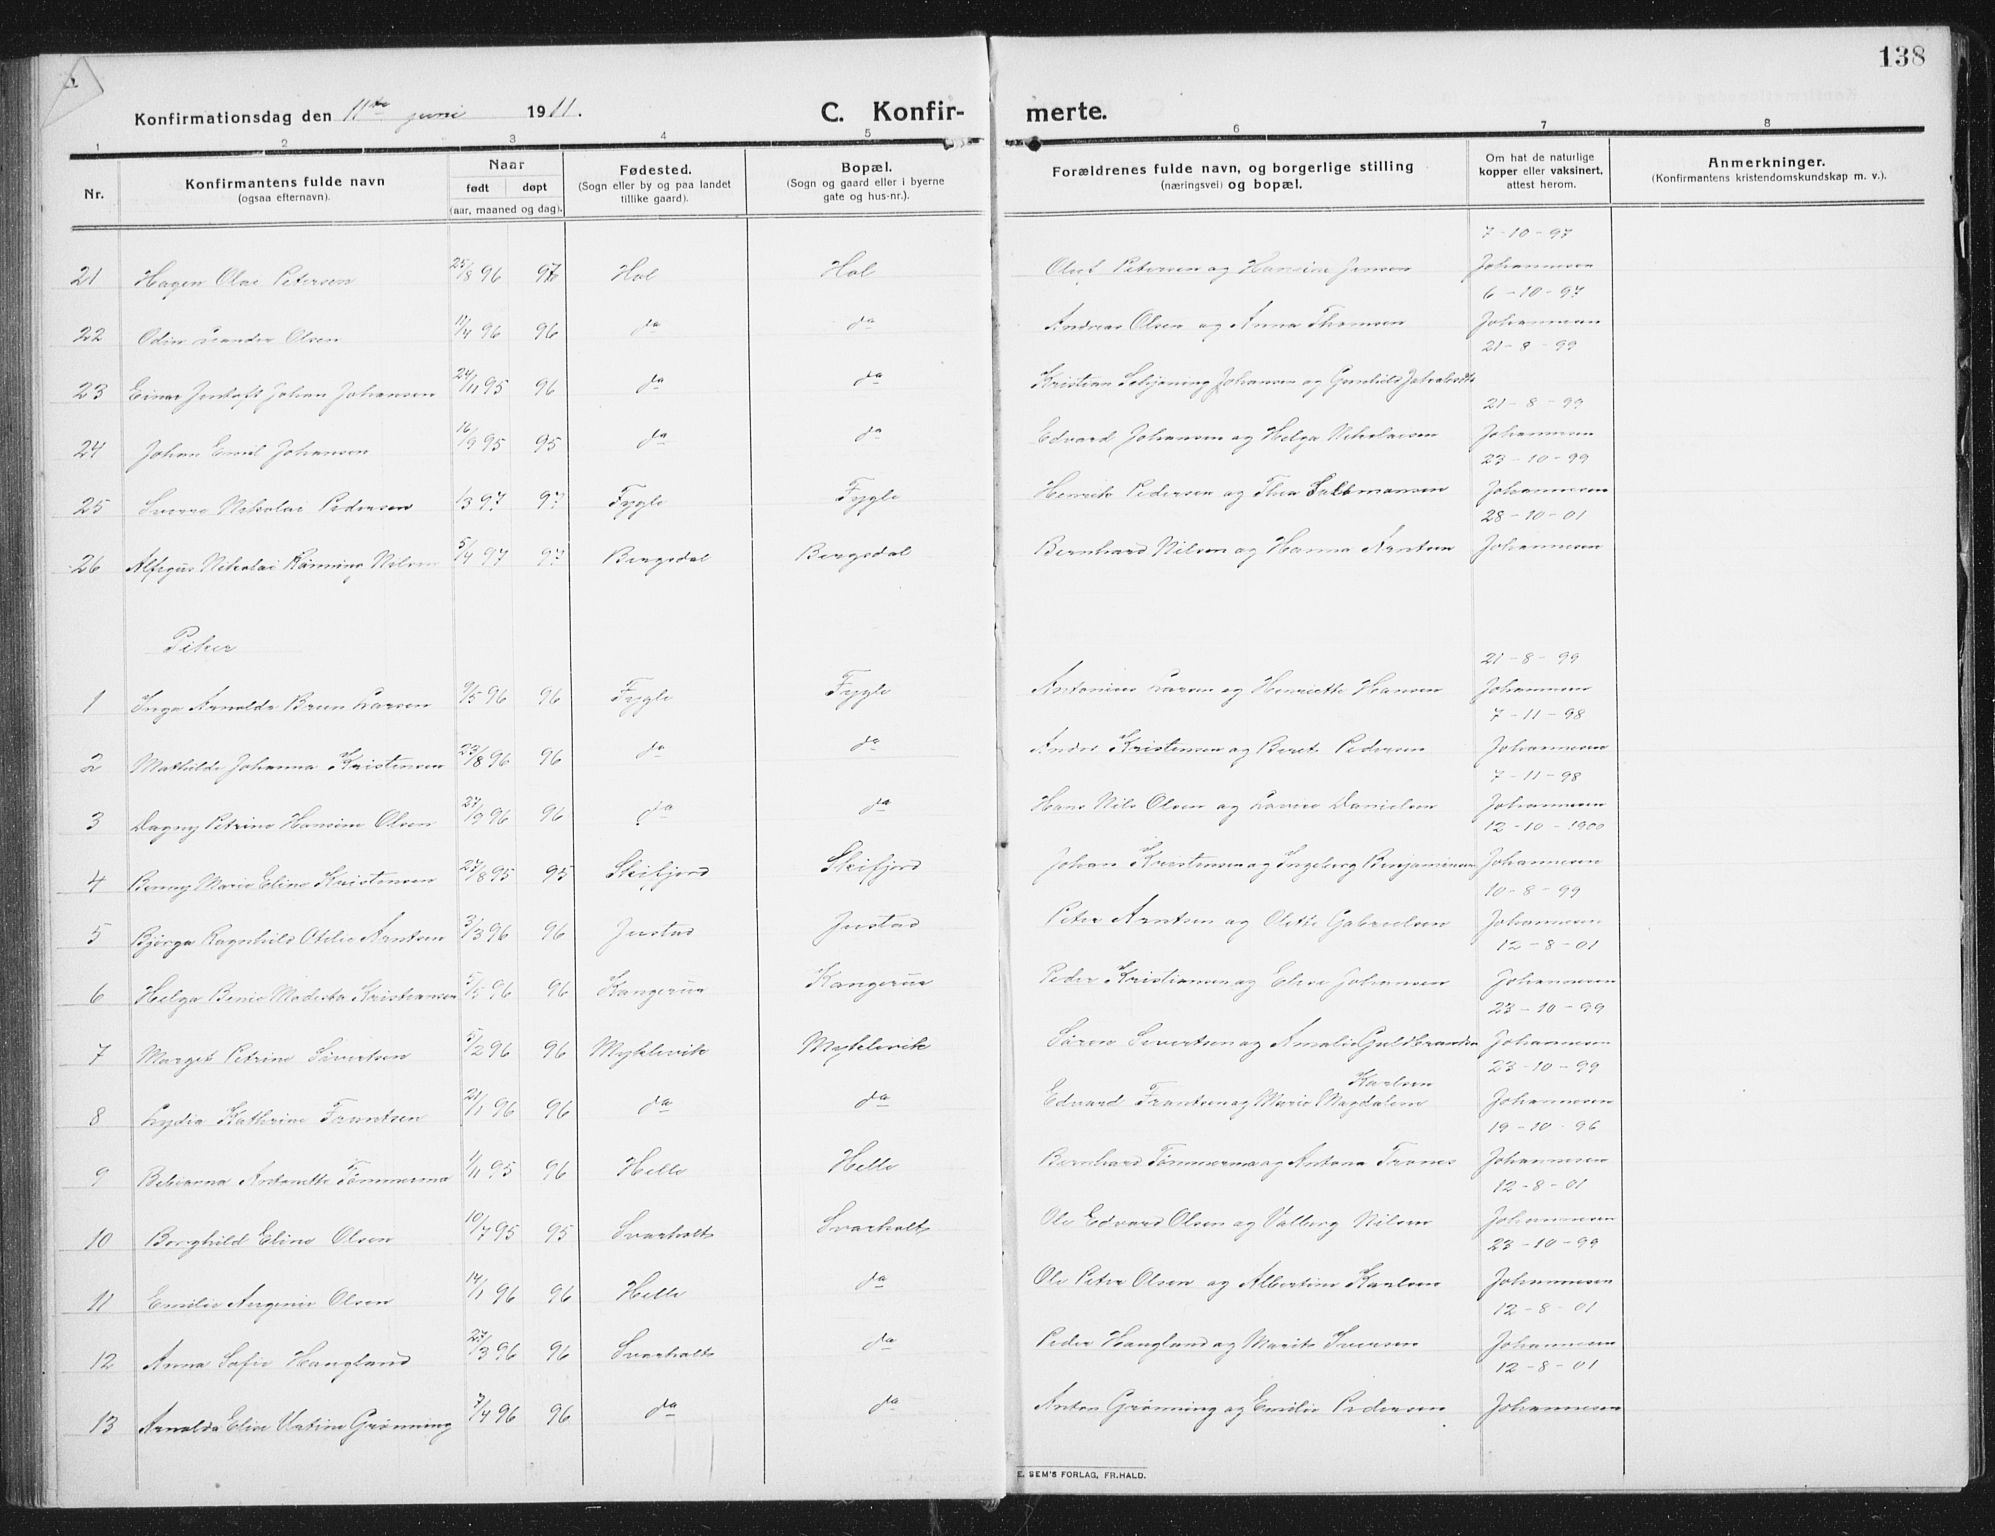 138
Konfirmationsdag den 11te juni 1911.
C. Konfirmerte.
1 2 3 4 5 6 7 8
Nr.
Konfirmantens fulde navn
(ogsaa efternavn).
Naar
født døpt
(aar, maaned og dag).
Fødested.
(Sogn eller by og paa landet
tillike gaard).
Bopæl.
(Sogn og gaard eller i byerne
gate og hus-nr.).
Forældrenes fulde navn, og borgerlige stilling
(næringsvei) og bopæl.
Om hat de naturlige
kopper eller vaksinert,
attest herom.
Anmerkninger.
(Konfirmantens kristendomskundskap m. v.).
7-10-97
21 Hagen Olai Petersen 25/8 96 97 Hol Hol Oluf Petersen og Hansine Jensen Johannesen
6-10-97
22 Odin Leander Olsen 96 96 da da Andreas Olsen og Anna Thomsen Johannesen
21-8-99
23 Einar Jentoft Johan Johansen 24/11 95 96 da da Kristian Schjøning Johansen og Gunhild
21-8-99
24 Johan Emil Johansen 16/9 95 95 da da Edvard Johansen og Helga Nikolaisen Johannesen
23-10-99
25 Sverre Nikolai Pedersen 1/3 97 97 Fygle Fygle Henrik Pedersen og Thea Johannesen
28-10-01
26 Alfegus Nikolai Rønning Nilsen 5/4 97 97 Bergsdal Bergsdal Bernhard Nilsen og Hanna Arntsen Johannesen
Piker
21-8-99
1 Inga Arnolda Brun Larsen 9/5 96 96 Fygle Fygle Antonius Larsen og Henriette Hansen Johannesen
7-11-98
2 Mathilde Johanna Kristensen 23/8 96 96 da da Ander Kristensen og Beret Pedersen Johannesen
7-11-98
3 Dagny Petrine Hansine Olsen 27/9 96 96 da da Hans Nils Olsen og Lovise Danielsen Johannesen
12-10-1900
4 Benny Marie Eline Kristensen 27/8 95 95 Skifjord Skifjord Johan Kristensen og Ingeborg Benjaminsen Johannesen
10-8-99
5 Bjørga Ragnhild Otelie Arntsen 3/3 96 96 Justad Justad Peter Arntsen og Olette Gabrielsen Johannesen
12-8-01
6 Helga Benie Modesta Kristiansen 5/5 96 96 Kangerua Kangerua Peder Kristiansen og Elise Johansen Johannesen
23-10-99
7 Marget Petrine Sivertsen 5/2 96 96 Myklevik Myklevik Søren Sivertsen og Amalie Guldbrandsen Johannesen
23-10-99
8 Lydia Kathrine Frantsen 21/1 96 96 da da Edvard Frantsen og Marie Magdalene Karlsen Johannesen
19-10-96
9 Bebianna Antonette Tømmermo 1/11 95 96 Helle Helle Bernhard Tømmermo og Antona Tranes Johannesen
12-8-01
10 Borghild Eline Olsen 10/7 95 95 Svarholt Svarholt Ole Edvard Olsen og Valborg Nilsen Johannesen
23-10-99
11 Emilie Angenie Olsen 14/1 96 96 Helle da Ole Peter Olsen og Albertine Karlsen Johannesen
12-8-01
12 Anna Sofie Haugland 27/3 96 96 Svarholt da Peder Haugland og Marit Iversen Johannesen
12-8-01
13 Arnolda Elise Grønning 7/4 96 96 da da Anton Grønning og Emilie Pedersen Johannesen
E. SEM'S FORLAG, FR.HALD.